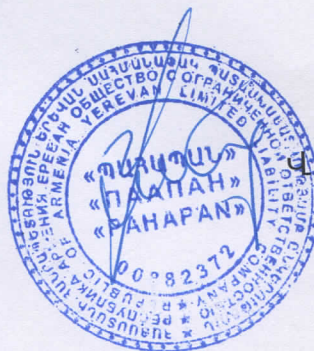 ՀԱՅԱՍՏԱՆԻ ՀԱՆՐԱՊԵՏՈՒԹՅՈՒՆ ԵՐԵՎԱՆ ՍԱՀՄԱՆԱՓԱԿ ՊԱՏԱՍԽԱՆԱՏՎՈՒԹՅԱՄԲ ԸՆԿԵՐՈՒԹՅՈՒՆ
РЕСПУБЛИКА АРМЕНИЯ ЕРЕВАН ОБЩЕСТВО С ОГРАНИЧЕННОЙ ОТВЕТСТВЕННОСТЬЮ
REPUBLIC OF ARMENIA YEREVAN LIMITED LIABILITY COMPANY
«ՊԱՀԱՊԱՆ»
«ПААПАН»
«PAHAPAN»